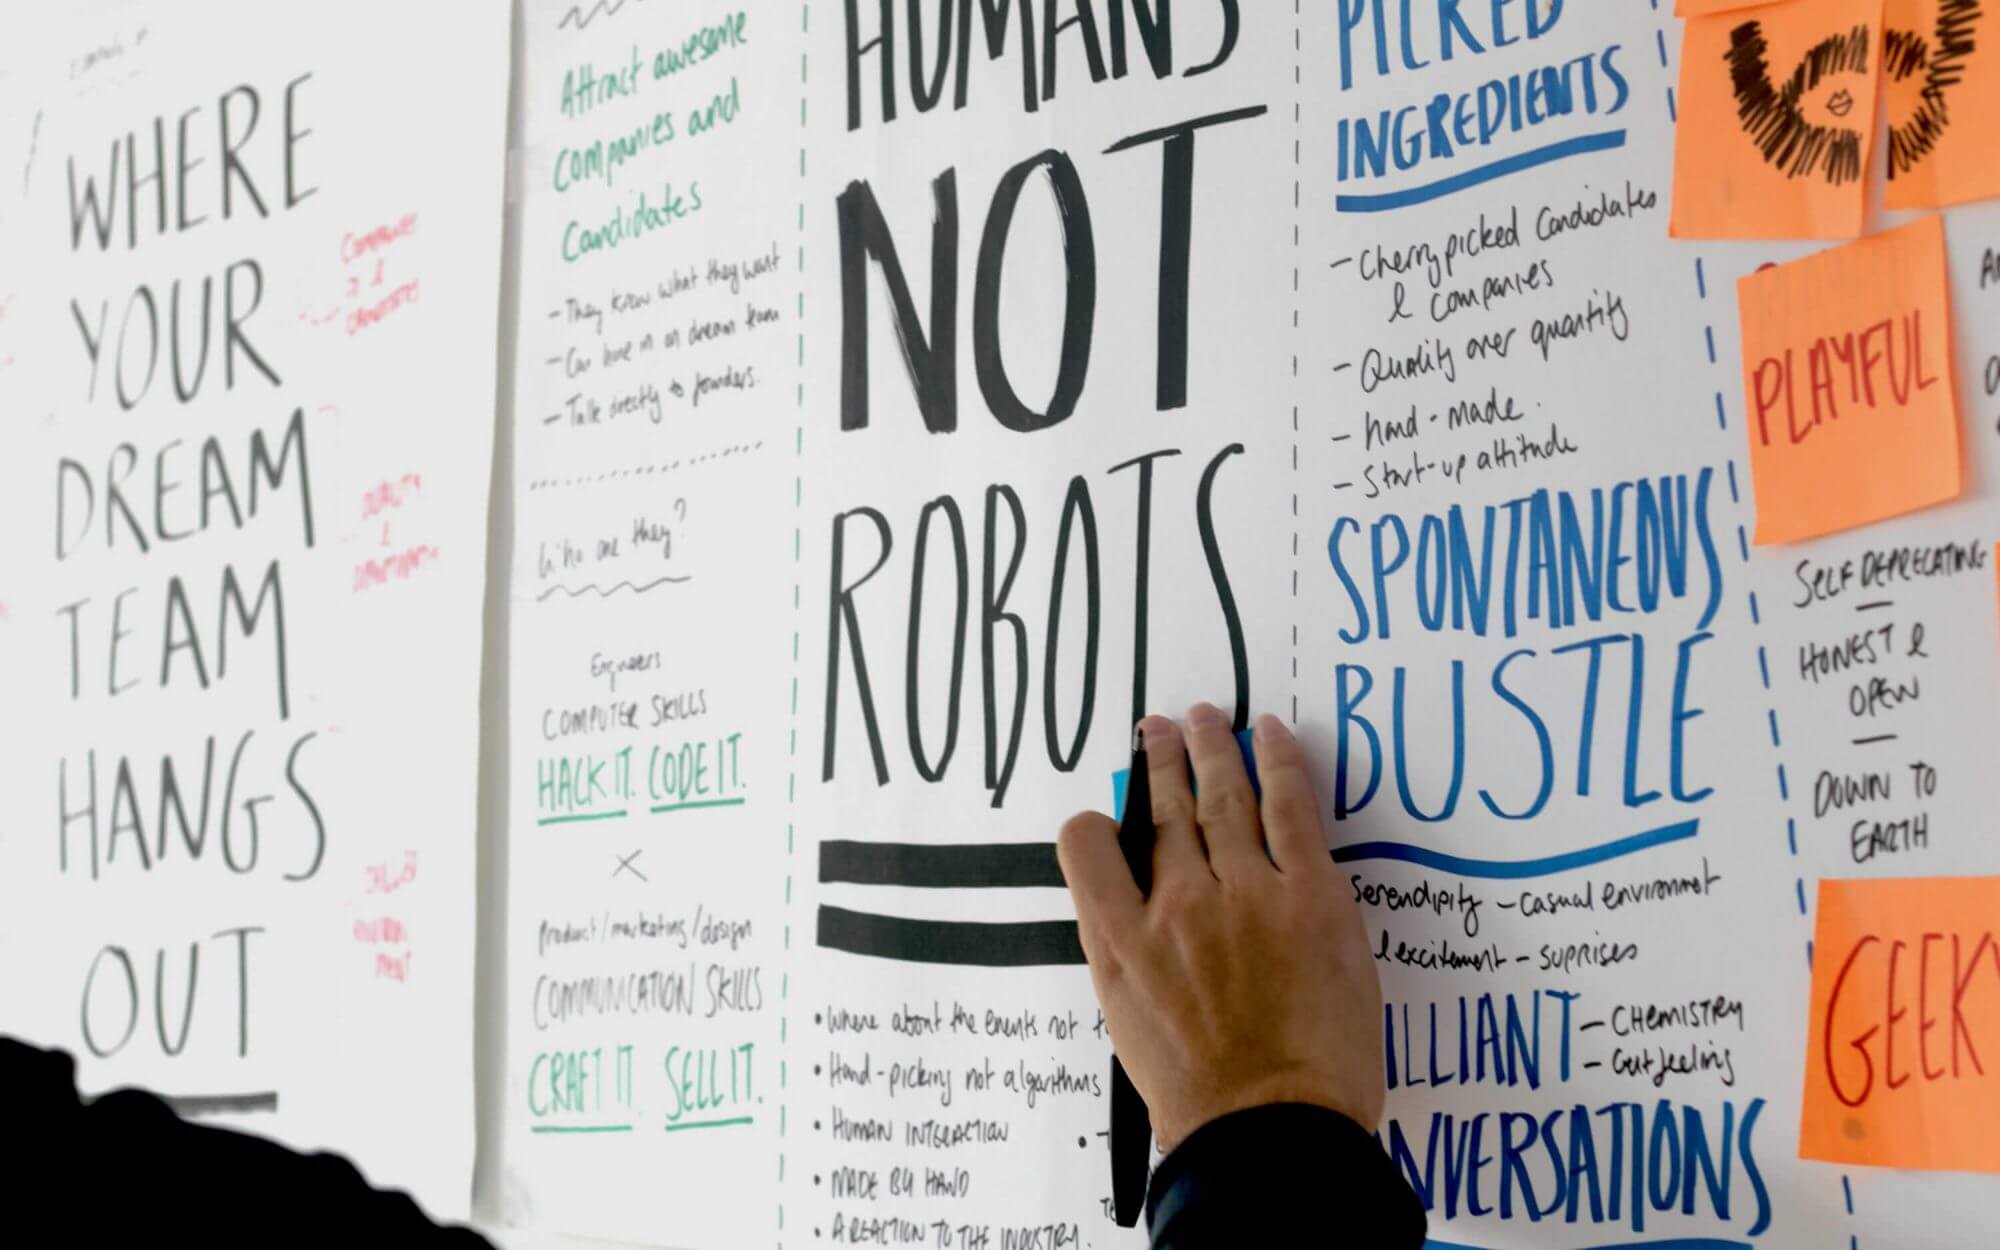 WHERE
YOUR
DREAM
TEAM
HANGS
OUT
Attract awesome
companies and
Candidates
- They know what they want
- Can hone in on dream team
- Talk directly to founders.
Who are they?
Engineers
COMPUTER SKILLS
HACK IT. CODE IT.
X
Product/marketing/design
COMMUNICATION SKILLS
CRAFT IT. SELL IT.
HUMANS
NOT
ROBOTS
• Where about the events not
• Hand-picking not algorithms
• HUMAN INTERACTION
• MADE BY HAND
• A REACTION TO THE INDUSTRY.
PICKED
INGREDIENTS
- Cherrypicked Candidates
& companies
- Quality over quantity
- hand-made.
- Start-up attitude
SPONTANEOUS
BUSTLE
Serendipity - Casual environment
& excitement - suprises
ILLIANT - CHEMISTRY
- Gut feeling
NVERSATIONS
PLAYFUL
SELF DEPRECATING
—
HONEST &
OPEN
—
DOWN TO
EARTH
GEEK